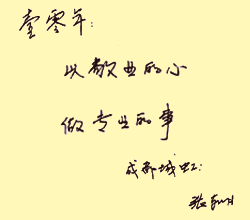 壹零年:
以敬业的心
做专业的事
成都城虹: